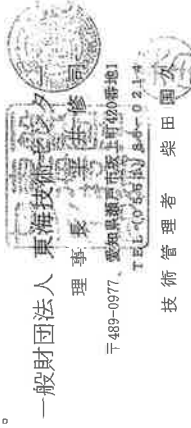 。
一般財団法人 東海技術センター
理事長
〒489-0977 愛知県瀬戸市坂上町420番地1
TEL(0561)86-0214
技術管理者 柴田